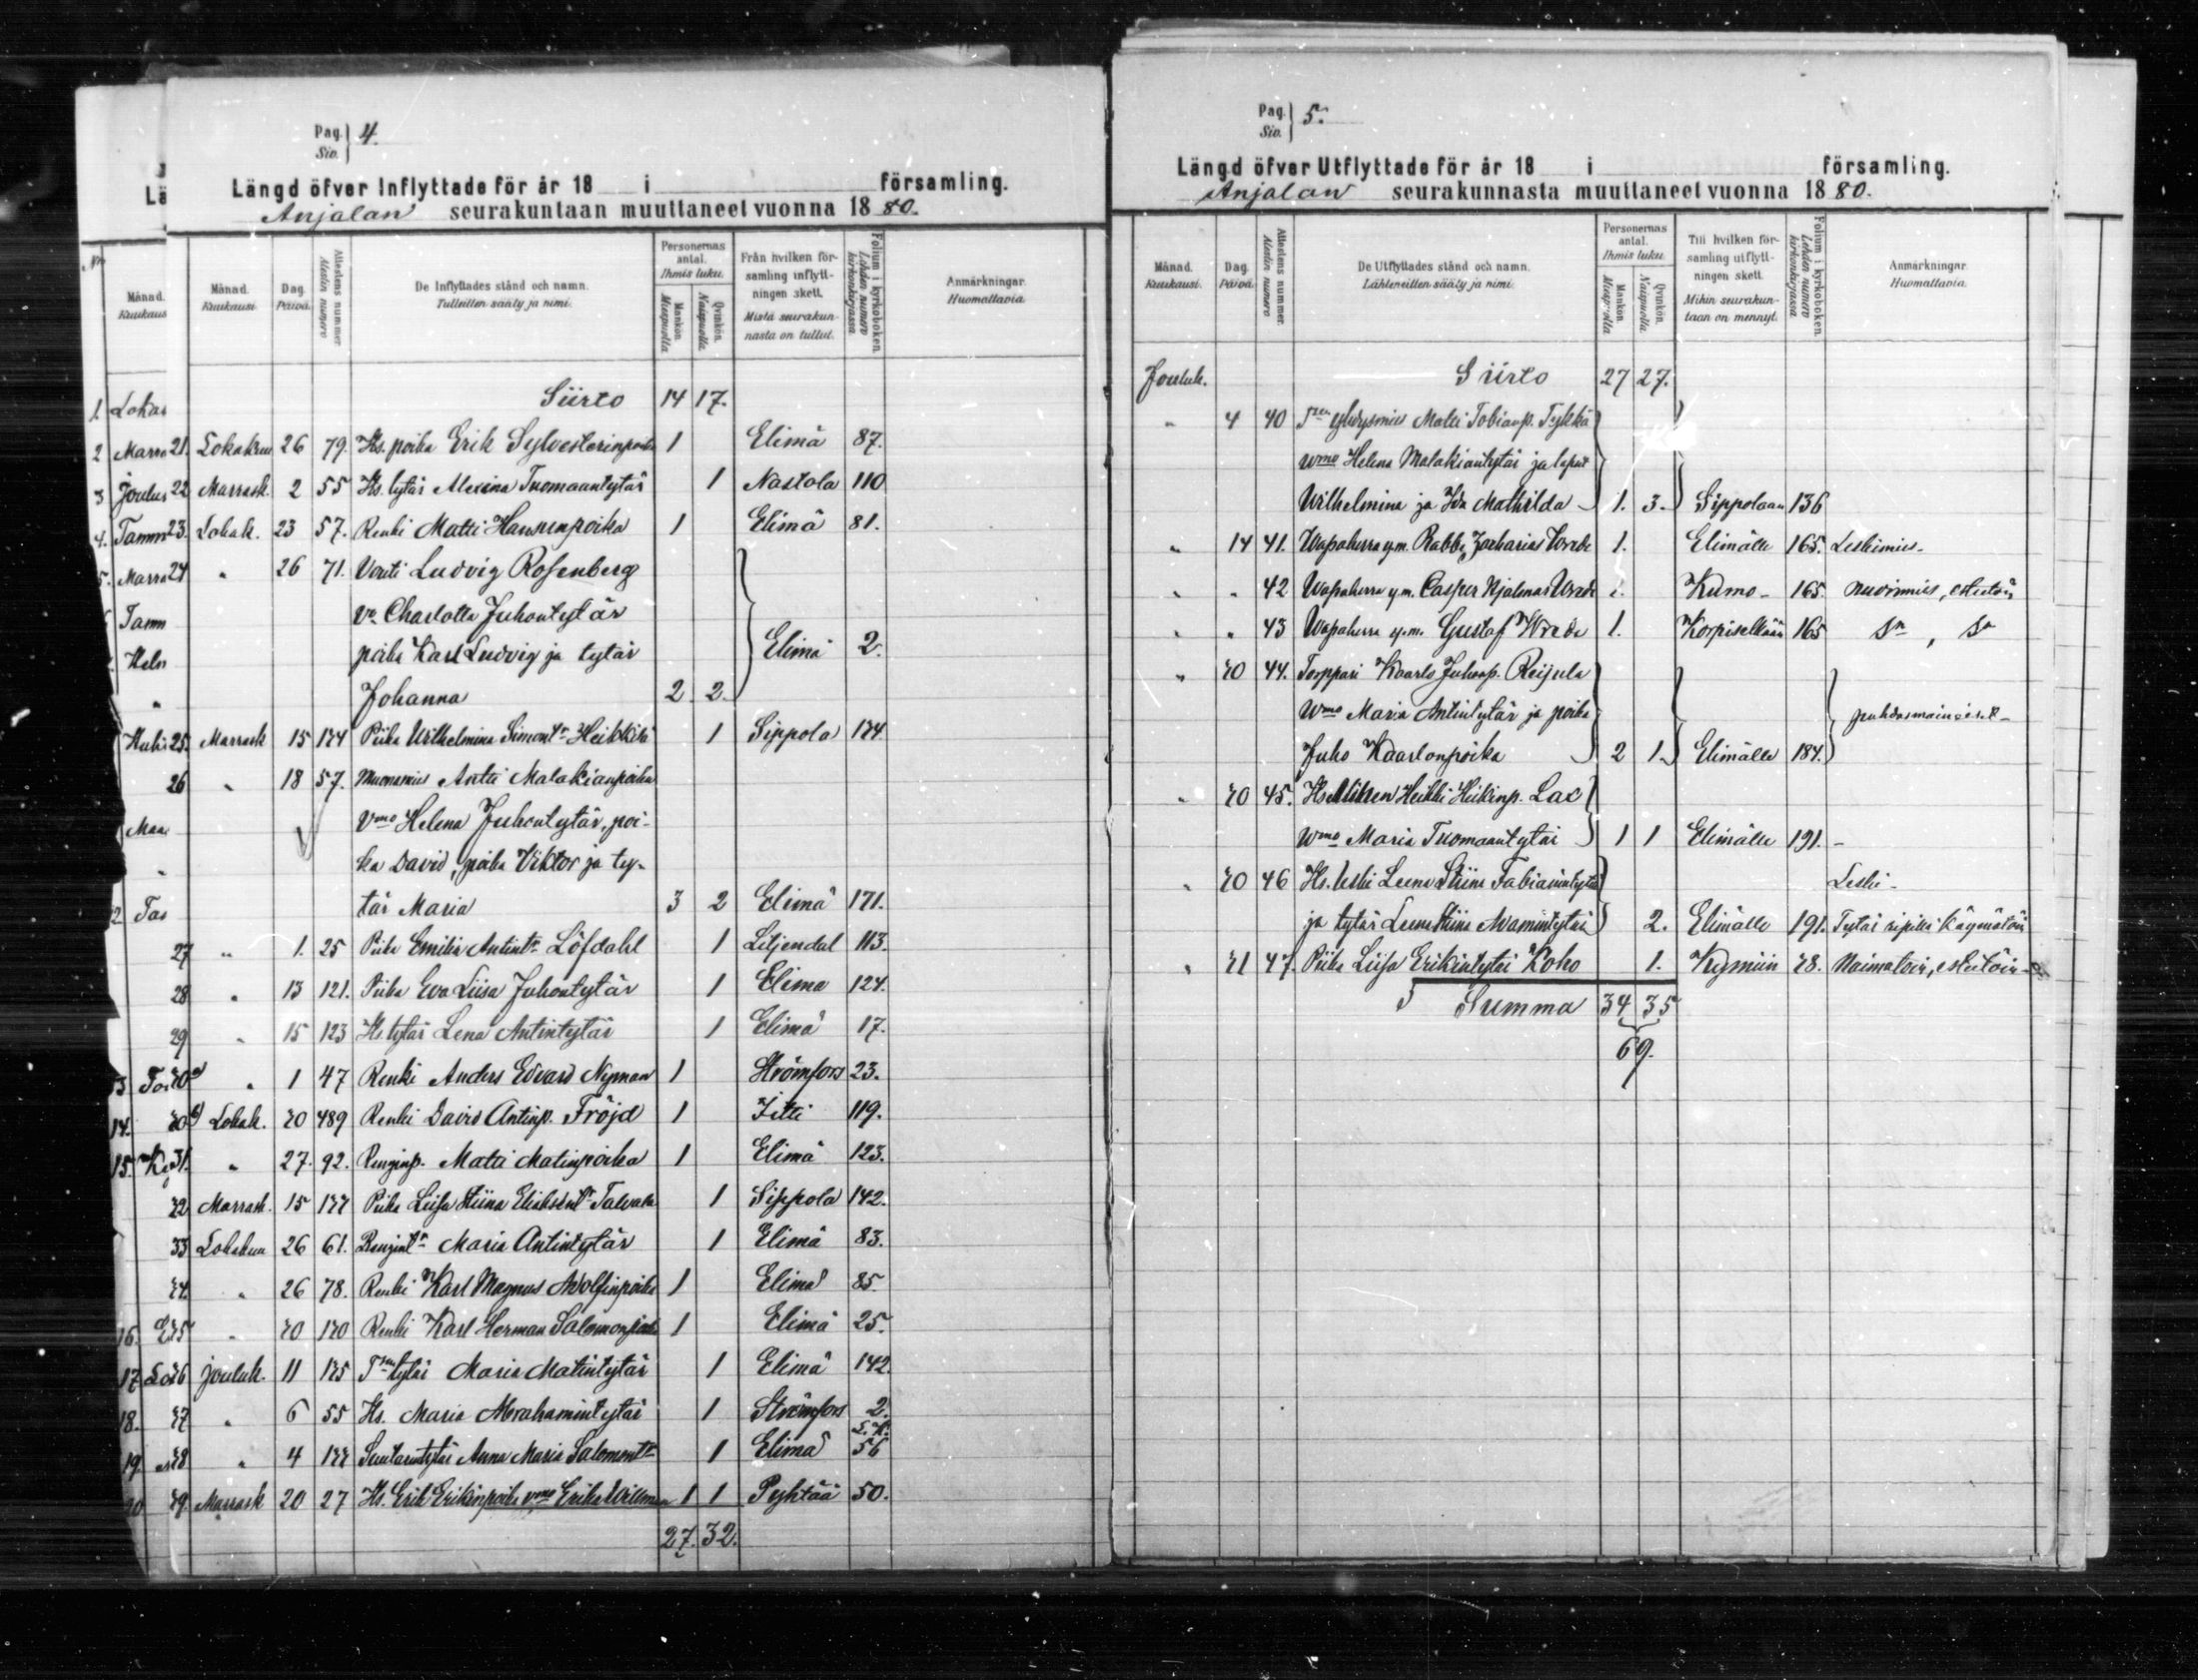 Pag. Siv. 4.
Längd öfver Inflyttade för år 18 i församling.
Anjalan seurakuntaan muuttaneet vuonna 1880.
Månad. Kuukausi. Dag. Päivä. Attestens nummer. Alestin numero De Inflyttades stånd och namn. Tulleitten sääty ja nimi. Personernas antal. Ihmis luku. Mankön. Miespuolia Qvinkön. Naispuolia. Från hvilken församling inflyttningen skett. Mistä seurakunnasta on tullut. Folium i kyrkoboken. Lehden numero kirkonkirjassa Anmärkningar. Huomattavia.
Siirto 14 17.
21. Lokakuu 26 79. Hs. poika Erik Sylvesterinpoika 1 Elimä 87.
22 Marrask. 2 55 Hs. tytär Alexina Tuomaantytär 1 Nastola 110
23. Lokak. 23 57. Renki Matti Hannunpoika 1 Elimä 81.
24 " 26 71. Vouti Ludvig Rosenberg
Vo Charlotta Juhontytär
poika Karl Ludvig ja tytär Elimä 2.
Johanna 2 2.
25. Marrask 15 174 Piika Wilhelmina Simont:r Heikkilä 1 Sippola 174
26 " 18 57. Muonamies Antti Malakianpoika
Vmo Helena Juhontytär, poi-
ka David, poika Viktor ja ty-
tär Maria 3 2 Elimä 171.
27 " 1. 25 Piika Emilia Antint:r Löfdahl 1 Liljendal 113.
28 " 13 121. Piika Eva Liisa Juhontytär 1 Elimä 124.
29 " 15 123 Hs. tytär Lena Antintytär 1 Elimä 17.
30 a) " 1 47 Renki Anders Edvard Nyman 1 Strömfors 23.
30 b) Lokak. 30 489 Renki David Antinp. Fröjd 1 Jitti 119.
31. " 27. 92. Renginp. Matti Matinpoika 1 Elimä 123.
32 Marrask. 15 177 Piika Liisa Stiina Eliaksent:r 1 Sippola 142.
33 Lokakuu 26 61. Rengint:r Maria Antintytär 1 Elimä 83.
34 " 26 78. Renki Karl Magnus Adolfinpoika 1 Elimä 85.
35 " 30 130 Renki Karl Herman Salomonpoika 1 Elimä 25.
36 Jouluk. 11 135 T:sen tytär Maria Matintytär 1 Elimä 142.
37 " 6 55 Hs. Maria Abrahamintytär 1 Strömfors 2.
38 " 4 177 Suutarintytär Anna Maria Salomont:r 1 Elimä 56
39. Marrask 20 27 Hs. Erik Erikinpoika vmo Erika Willman 1 1 Pyhtää 50.
27. 32.
Pag. Siv. 5.
Längd öfver Utflyttade för år 18 i församling.
Anjalan seurakunnasta muuttaneet vuonna 1880.
Månad. Kuukausi. Dag. Päivä. Attestens nummer. Alestin numero De Utflyttades stånd och namn. Lähteneitten sääty ja nimi. Personernas antal. Ihmis luku. Mankön. Miespuolia Qvinkön. Naispuolia. Till hvilken församling utflyttningen skett. Mihin seurakuntaan on mennyt. Folium i kyrkoboken. Lehden numero kirkonkirjassa Anmärkningar. Huomattavia.
Jouluk. Siirto 27 27.
" 4 40 T:sen yhdysmies Matti Tobianp. Tykkä
Wmo Helena Malakiantytär ja lapset
Wilhelmina ja Ida Mathilda 1. 3. Sippolaan 136
" 14 41. Wapaherra y.m. Rabbe Zacharias Wrede 1. Elimälle 165. Leskimies.
" " 42 Wapaherra y.m. Casper Hjalmar Wrede 1. Kumo 165. nuorimies, esteetön
" " 43 Wapaherra y.m. Gustaf Wrede 1. Korpiselkään 165 Sn, Sn
" 30 44. Torppari Kaarlo Juhonp. Reijula
Wmo Maria Antintytär ja poika puhdasmaineiset
Juho Kaarlonpoika 2 1. Elimälle 184.
" 30 45. Hs. Heikki Heikinp. Lax
Wmo Maria Tuomaantytär 1 1 Elimälle 191. -
" 30 46 Hs. leski Leena Stiina Fabianintytär Leski-
ja tytär Leena Stiina Adamintytär 2. Elimälle 191. Tytär ripillä käymätöin
" 31 47. Piika Liisa Erikintytär Koho 1. Kymiin 48. Naimatoin, esteetöin
Summa 34 35
69.